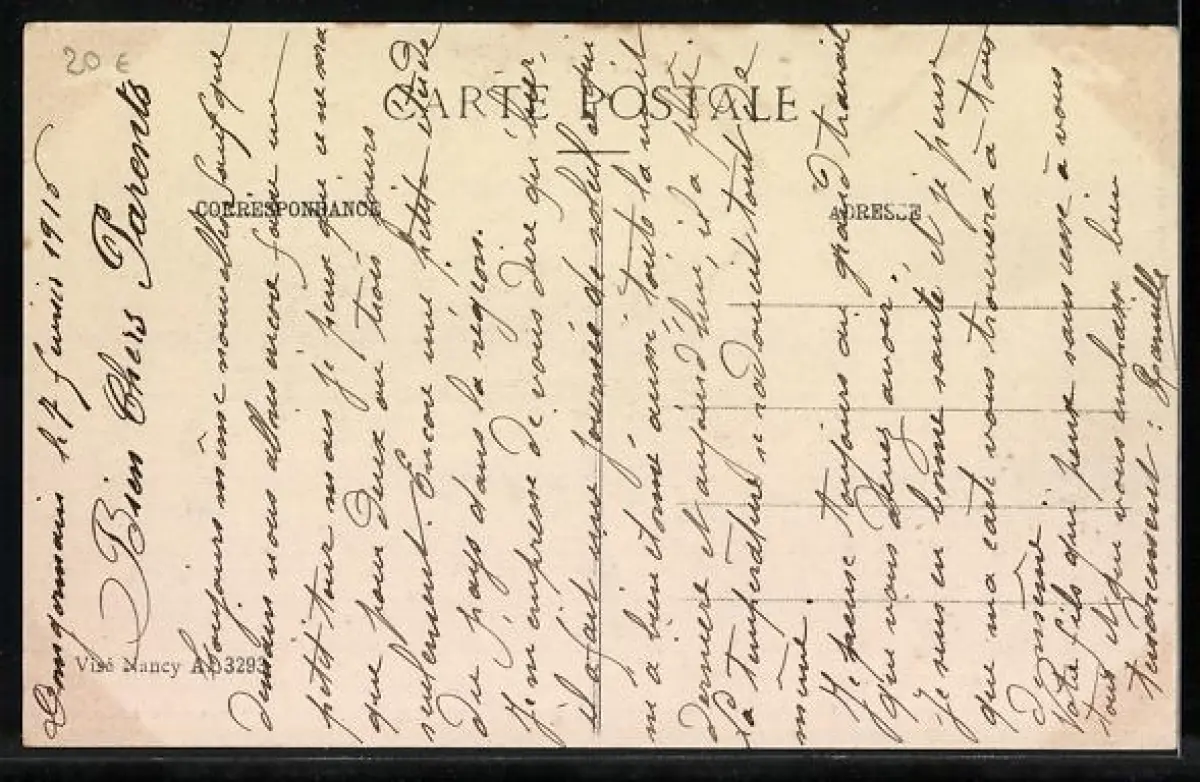 20 €
CARTE POSTALE
CORRESPONDANCE
ADRESSE
Visé Nancy 3293
le 17 1915
Bien Chers Parents
Toujours même nouvelles sauf que
demain nous allons encore faire un
petit tour mais je pense que ce ne sera
que pour deux ou trois jours
seulement. Encore une petite étude
du pays dans la région.
Je m'empresse de vous dire qu'hier,
il a fait une journée de soleil qui
m'a bien étonné aussi toute la nuit
dernière et aujourd'hui, il a plu.
La température se radoucit tout de
même.
Je pense toujours au grand travail
que vous devez avoir,
je suis en bonne santé et je pense
que ma carte vous trouvera à tous
de même
Votre fils qui pense sans cesse à vous
tous et qui vous embrasse bien
tendrement : Camille